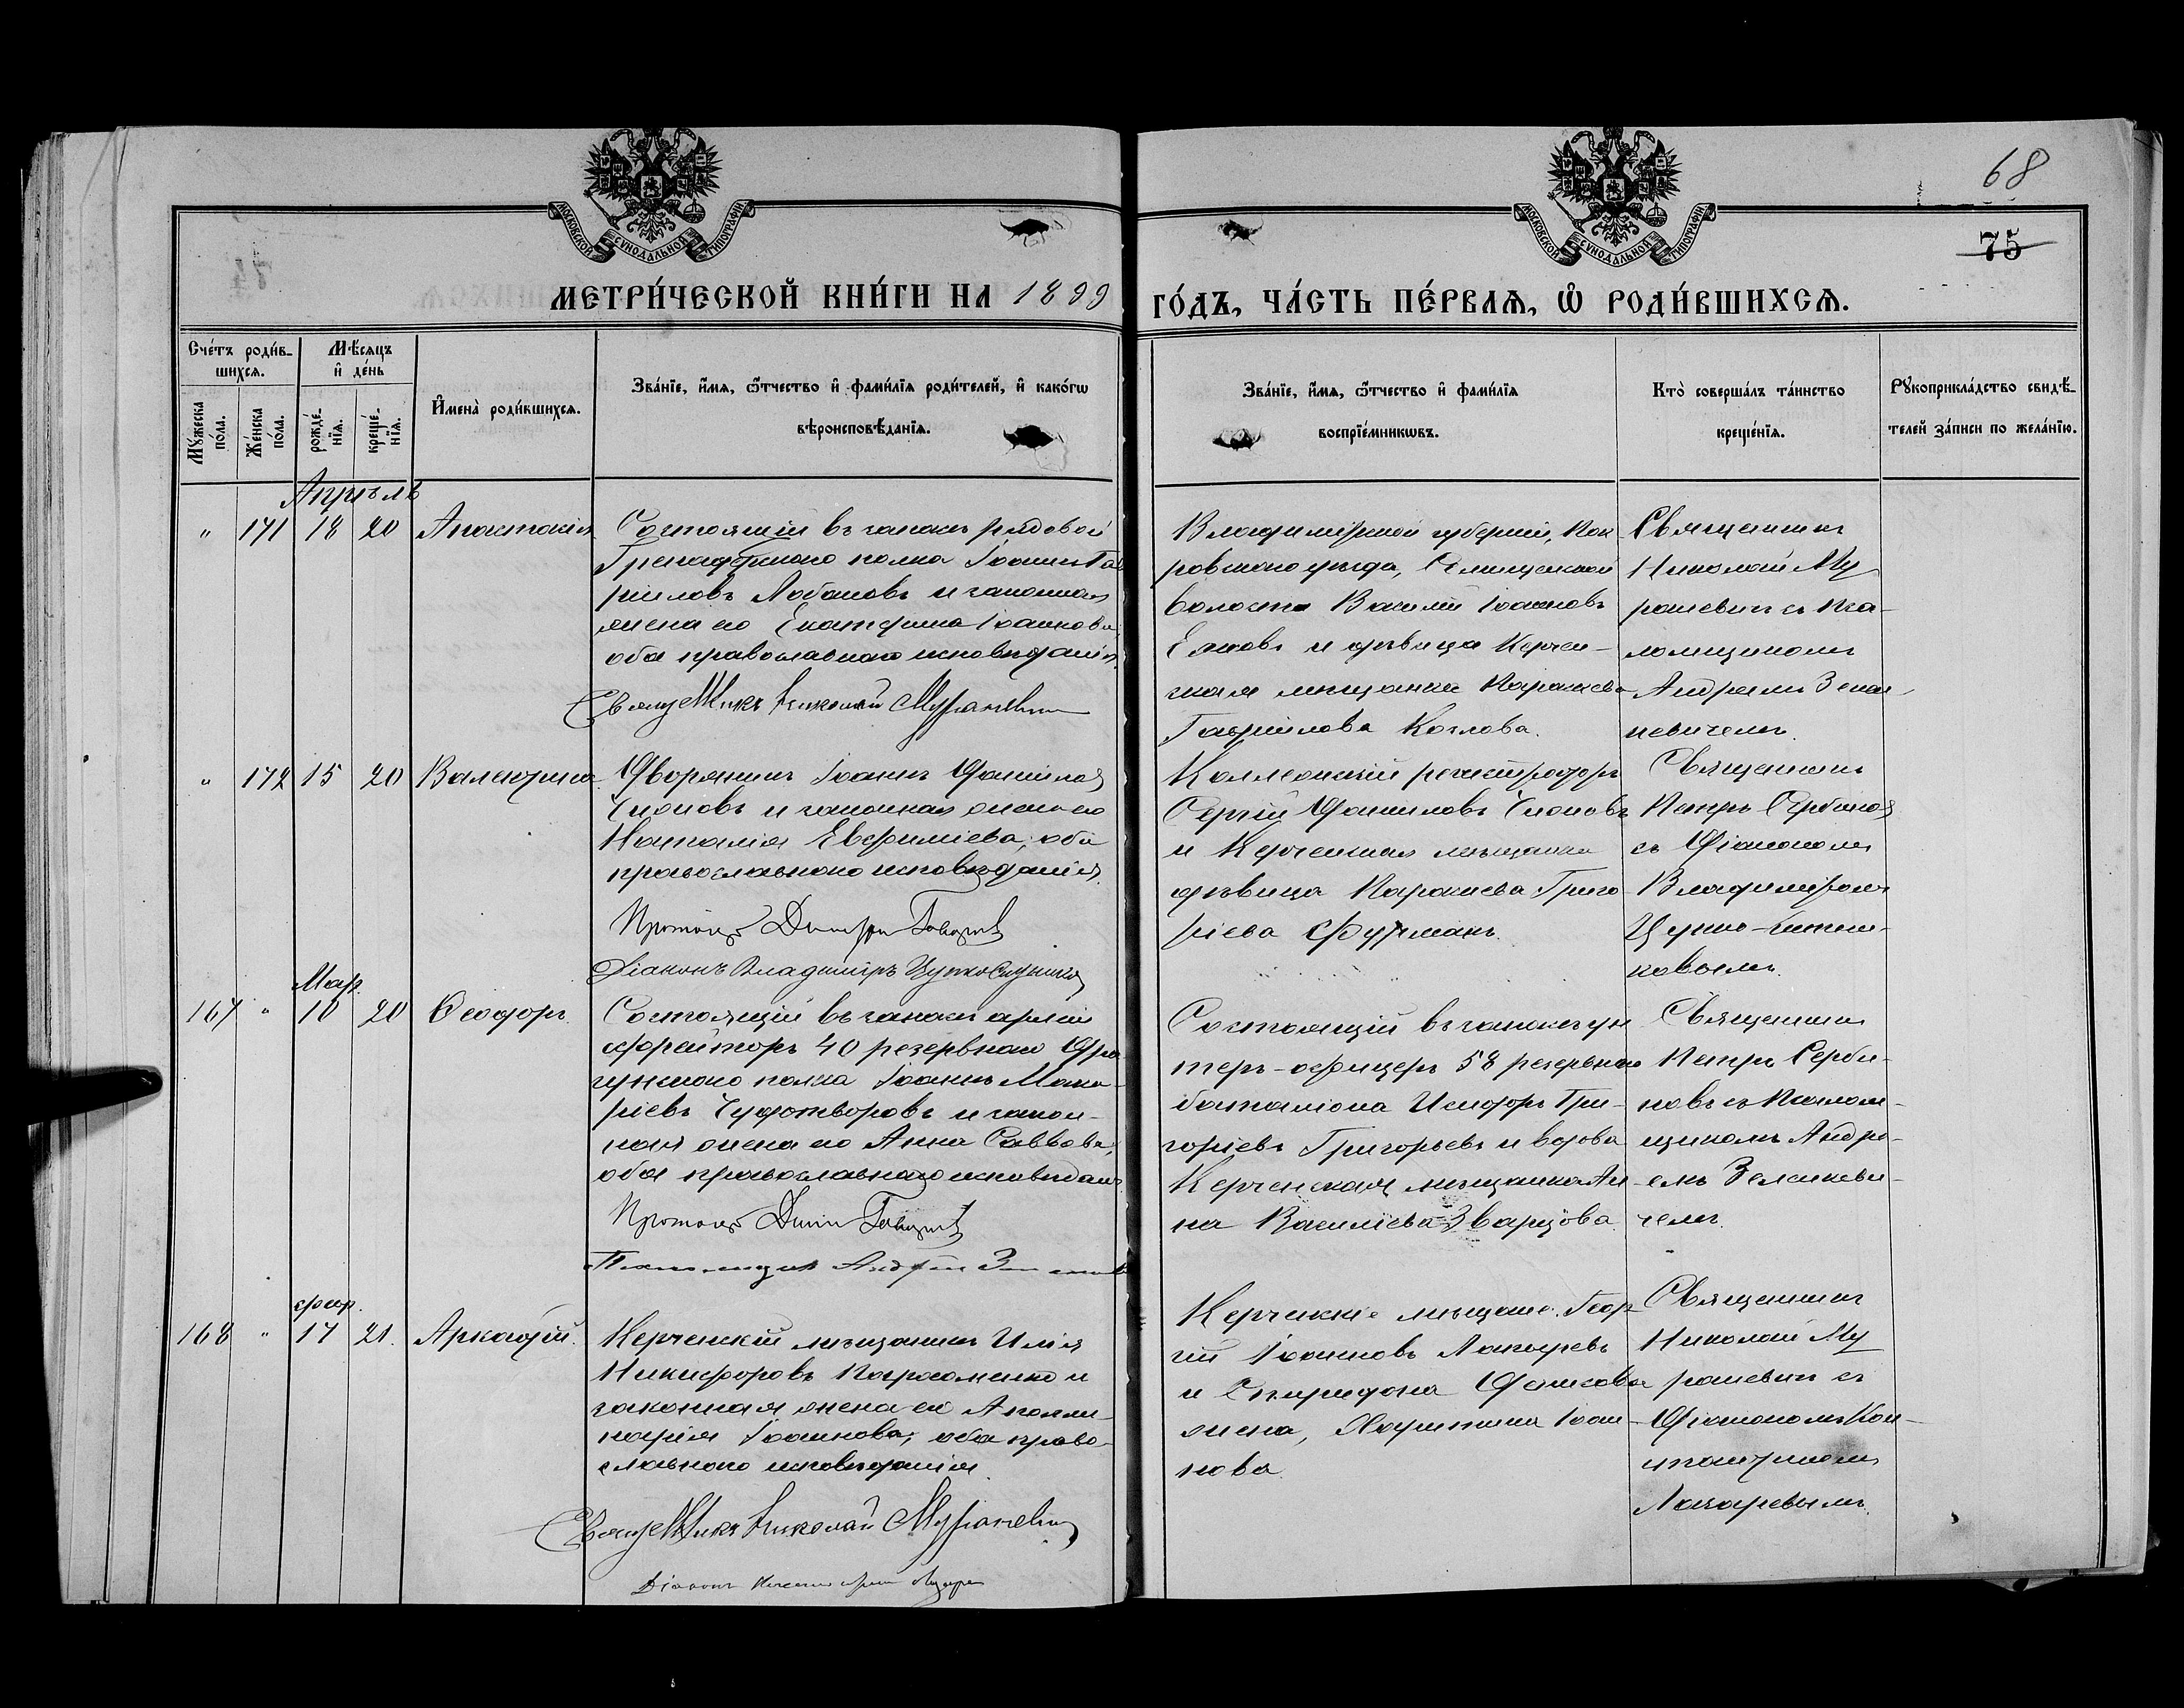 68
75
МОСКОВСКОЙ СѴНОДАЛЬНОЙ ТИПОГРАФІИ
МОСКОВСКОЙ СѴНОДАЛЬНОЙ ТИПОГРАФІИ
МЕТРИ́ЧЕСКОЙ КНИ́ГИ НА 1899 ГО́ДЪ, ЧА́СТЬ ПЕ́РВАѦ, Ѽ РОДИ́ВШИХСѦ.
Сче́тъ роди́в-
шихсѧ.
Мꙋ́жеска
по́ла.
Же́нска
по́ла.
Мѣ́сѧцъ
и҆ де́нь
рожде́-
нїѧ.
креще́-
нїѧ.
И҆мена̀ роди́вшихсѧ.
Зва́нїе, и҆́мѧ, ѻ҆́тчество и҆ фами́лїѧ роди́телей, и҆ како́гѡ
вѣроисповѣ́данїѧ.
Зва́нїе, и҆́мѧ, ѻ҆́тчество и҆ фами́лїѧ
воспрїе́мникѡвъ.
Кто̀ соверша́лъ та́инство
креще́нїѧ.
Рꙋкоприкла́дство свидѣ́-
телей за́писи по жела́нїю.
Апрѣль
" 171 18 20 Анастасія
Состоящій въ запасѣ рядовой
Гренадерскаго полка Іоаннъ Гав
ріиловъ Лобановъ и законная
жена его Екатерина Іоаннова,
оба православнаго исповѣданія
Священникъ Николай Мураневич
Владимірской губерніи, Пок
ровскаго уѣзда,
волости Василій Іоанновъ
и дѣвица Керчен-
ская мѣщанка Параскева
Гавріилова Козлова.
Священникъ
Николай Му
раневичъ съ Пса-
ломщикомъ
Андреемъ
невичемъ.
" 172 15 20 Валентина
Дворянинъ Іоаннъ Даніиловъ
и законная жена его
Наталія Евфиміева, оба
православнаго исповѣданія.
Протоіер Димитр
Діаконъ Владиміръ
Коллежскій регистраторъ
Сергій Данииловъ
и Керченская мѣщанка
дѣвица Параскева Григо
ріева Фурманъ.
Священникъ
Петръ Сербиновъ
съ Діакономъ
Владиміромъ
Цупко-Ситни-
ковымъ.
Мар.
167 " 10 20 Ѳеодоръ.
Состоящій въ запасѣ арміи
ефрейторъ 40 резервнаго Дра
гунскаго полка Іоаннъ Мака-
ріевъ Чудотворовъ и закон-
ная жена его Анна Саввова,
оба православнаго исповѣдан.
Протоіер Дими
Псаломщикъ Андрей
Состоящій въ запасѣ ун
теръ-офицеръ 58 резервнаго
баталіона Исидоръ Гри-
горіевъ Григорьевъ и вдова
Керченская мѣщанка Ан-
на Василіева Зварцова.
Священникъ
Петръ Серби-
новъ съ Псалом-
щикомъ Андре-
емъ
чемъ.
февр.
168 " 17 21. Аркадій.
Керченскій мѣщанинъ Илія
Никифоровъ и
законная жена его Аполли-
нарія Іоаннова, оба право-
славнаго исповѣданія
Священникъ Николай Мураневич
Діаконъ
Керченскіе мѣщане: Геор
гій Іоанновъ Лазаревъ
и Спиридона
жена, Іоан-
нова.
Священникъ
Николай Му
раневичъ съ
Діакономъ Кон-
Лазаревымъ.